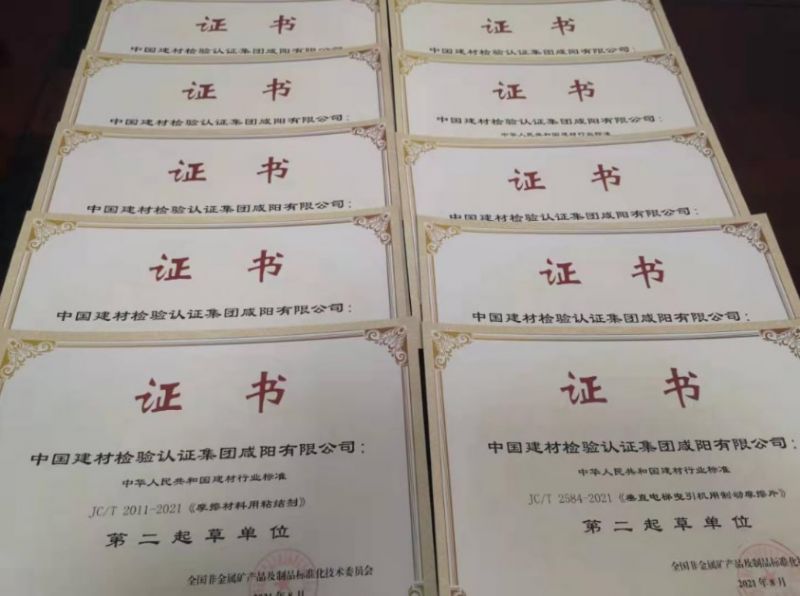 证 书
中国建材检验认证集团咸阳有限公司:
证 书
中国建材检验认证集团咸阳有限公司:
证 书
中国建材检验认证集团咸阳有限公司:
证 书
中国建材检验认证集团咸阳有限公司:
证 书
中国建材检验认证集团咸阳有限公司:
中华人民共和国建材行业标准
JC/T 2011-2021《摩擦材料用粘结剂》
第二起草单位
全国非金属矿产品及制品标准化技术委员会
2021 年 8 月
证 书
中国建材检验认证集团咸阳有限公司:
证 书
中国建材检验认证集团咸阳有限公司:
中华人民共和国建材行业标准
证 书
中国建材检验认证集团咸阳有限公司:
证 书
中国建材检验认证集团咸阳有限公司:
证 书
中国建材检验认证集团咸阳有限公司:
中华人民共和国建材行业标准
JC/T 2584-2021《垂直电梯曳引机用制动摩擦片》
第二起草单位
全国非金属矿产品及制品标准化
2021 年 8 月